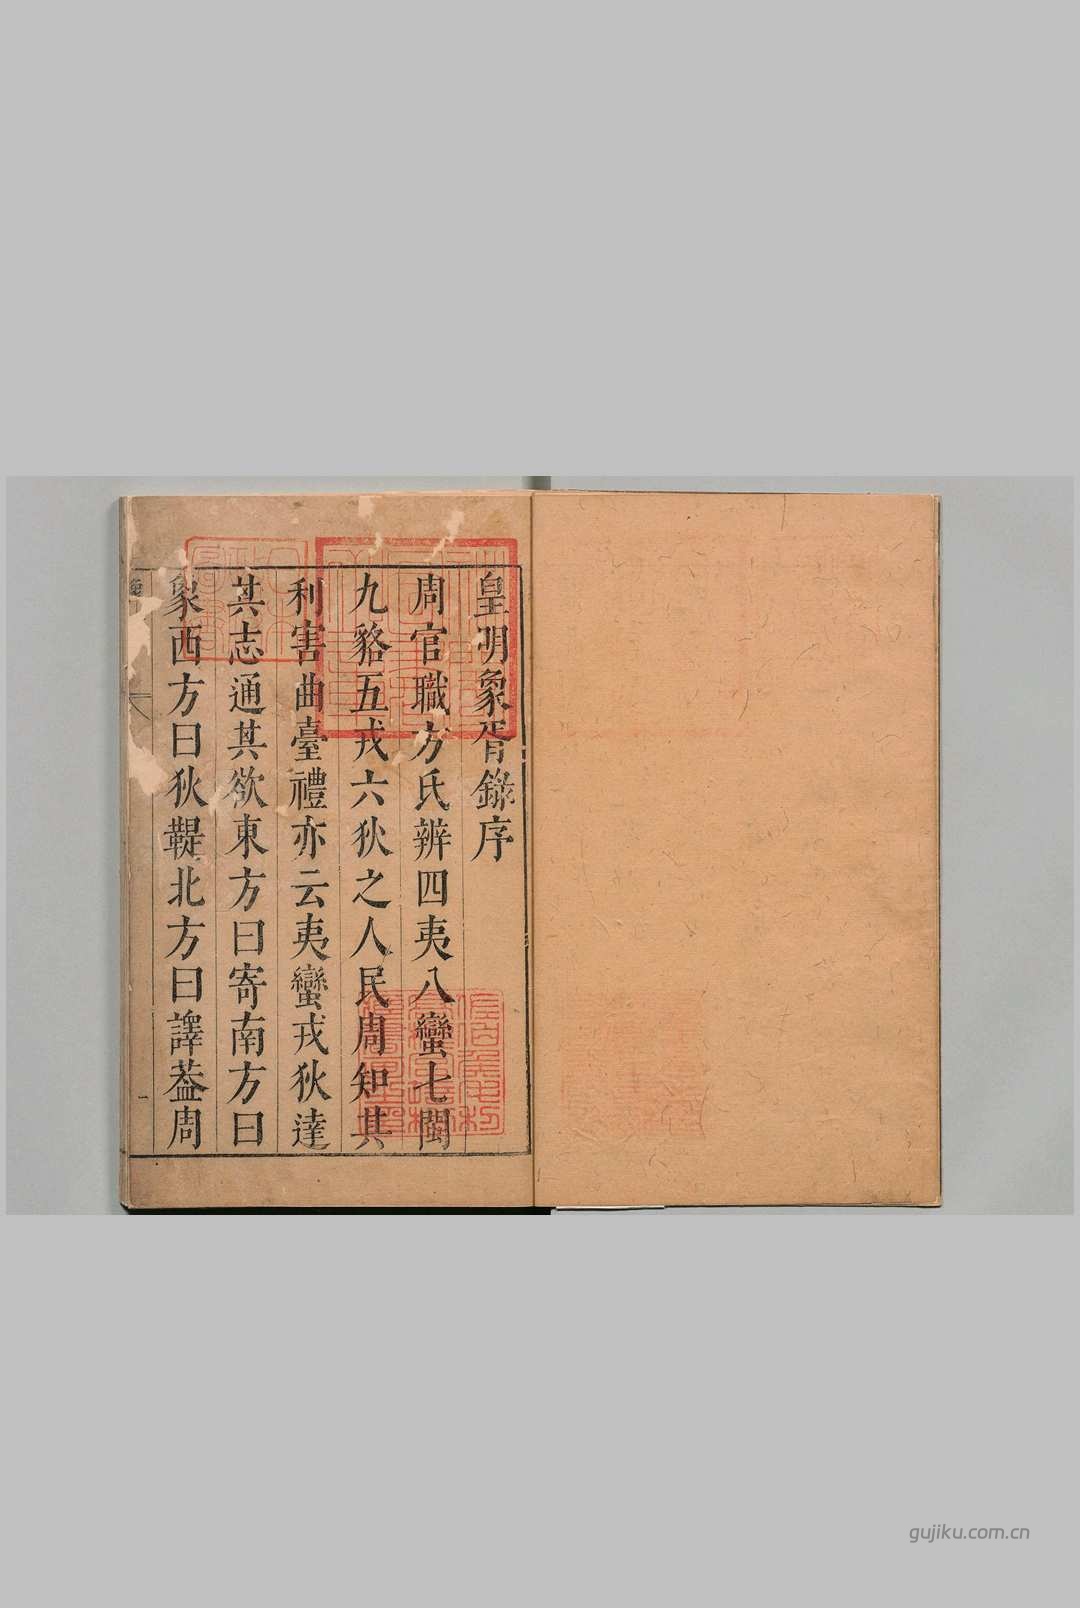 皇明象胥錄序
周官職方氏辨四夷八蠻七閩
九貉五戎六狄之人民周知其
利害曲臺禮亦云夷蠻戎狄達
其志通其欲東方曰寄南方曰
象西方曰狄鞮北方曰譯葢周
一
gujiku.com.cn